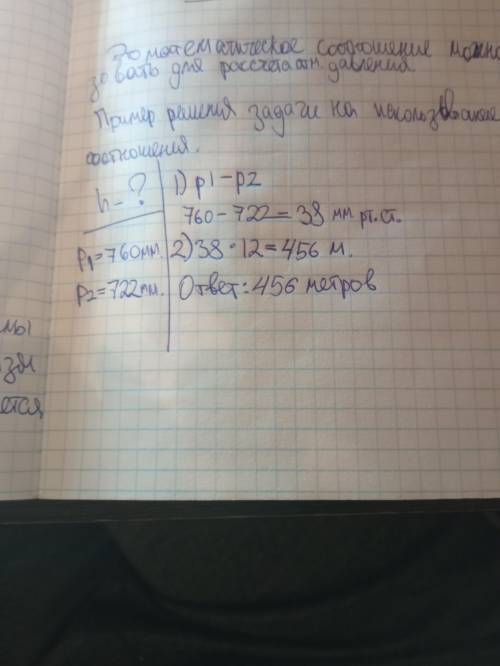 математическое соотношение можно
зовать для рассчета атм. давления
Пример решения задачи на использование
соотношения.
h - ?
1) p1 - p2
760 - 722 = 38 мм рт. ст.
P1 = 760мм.
2) 38 · 12 = 456 м.
P2 = 722мм.
Ответ: 456 метров
мы
ется